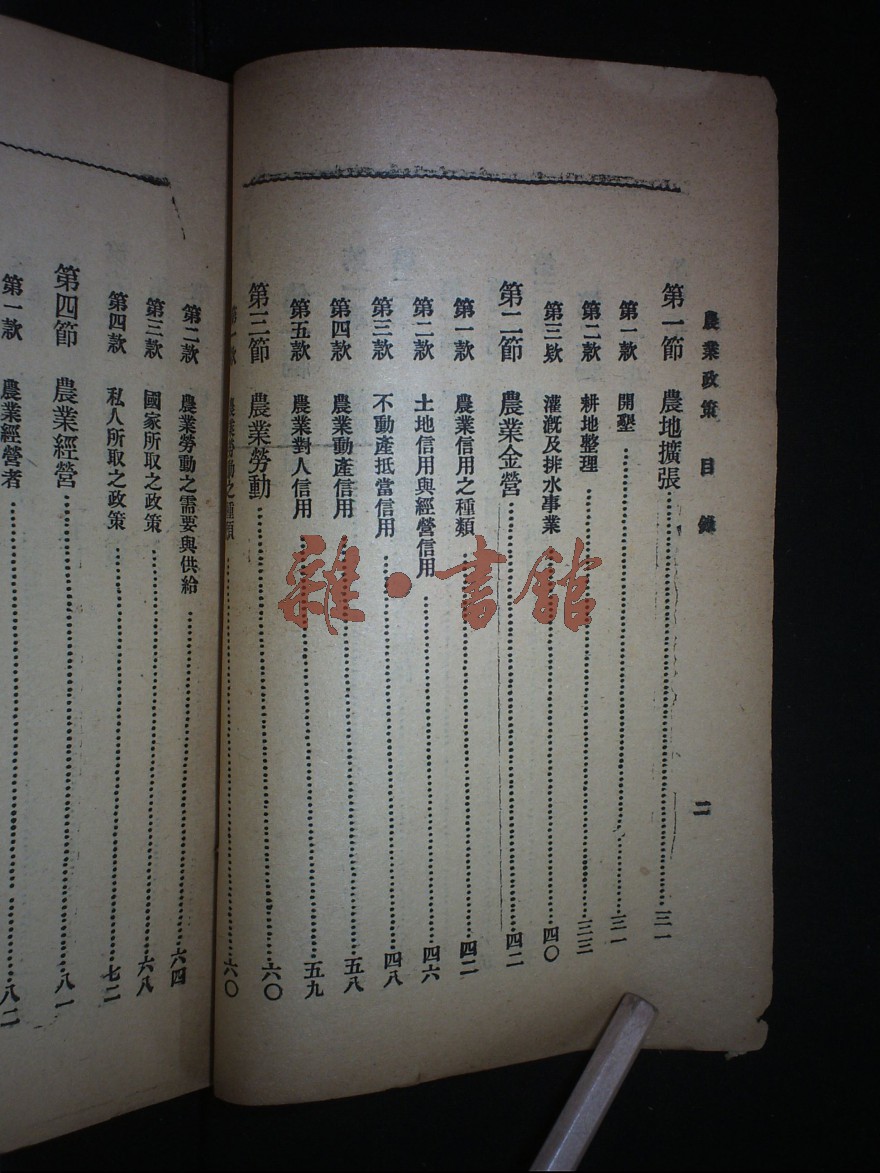 農業政策 目錄 二
第一節 農地擴張 三一
第一款 開墾 三一
第二款 耕地整理 三三
第三欵 灌漑及排水事業 四〇
第二節 農業金營 四二
第一款 農業信用之種類 四二
第二款 土地信用與經營信用 四六
第三款 不動產抵當信用 四八
第四款 農業動產信用 五八
第五款 農業對人信用 五九
第三節 農業勞動 六〇
第一款 農業勞動之種類 六〇
第二款 農業勞動之需要與供給 六四
第三款 國家所取之政策 六八
第四款 私人所取之政策 七二
第四節 農業經營 八一
第一款 農業經營者 八二
雜·書館